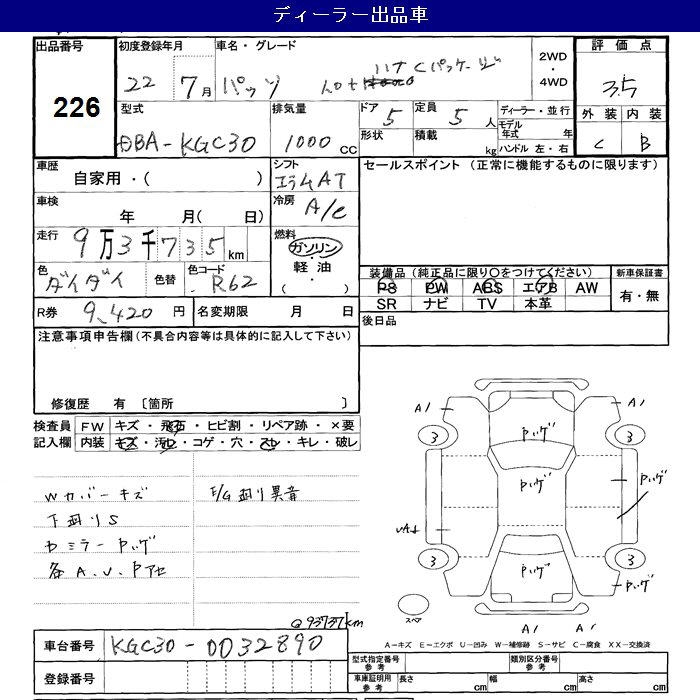 ディーラー出品車
出品番号 初度登録年月 車名・グレード 2WD・4WD 評価点
226 22 7月 パッソ 1.0+ ハナCパッケージ 3.5
外装 内装
C B
型式 排気量 ドア 定員 ディーラー・並行
DBA-KGC30 1000cc 5 5人 モデル年式 年
形状 積載 kg ハンドル 左・右
車歴 シフト セールスポイント (正常に機能するものに限ります)
自家用・( ) コラムAT
車検 年 月( 日) 冷房 A/C
走行 燃料
9万3千735km ガソリン・軽油・( )
色 色替 色コード 装備品 (純正品に限り○をつけてください) 新車保証書
ダイダイ R62 PS PW ABS エアB AW 有・無
SR ナビ TV 本革
R券 9,420円 名変期限 月 日 後日品
注意事項申告欄(不具合内容等は具体的に記入して下さい)
修復歴 有 〔箇所 〕
検査員記入欄 FW キズ・飛石・ヒビ割・リペア跡・×要
内装 キズ・汚れ・コゲ・穴・スレ・キレ・破レ
Wカバーキズ E/G廻り異音
下廻りS
カミラーPハゲ
各A.U.Pアセ
Q93737km
A1
A1
3
3
Pハゲ
Pハゲ
Pハゲ
UA1
3
3
Pハゲ
Pハゲ
スペア
A1
A1
A-キズ E-エクボ U-凹み W-補修跡 S-サビ C-腐食 XX-交換済
車台番号 KGC30-0032890
登録番号
型式指定番号 参考 類別区分番号 参考
車庫証明用 参考 長さ cm 幅 cm 高さ cm